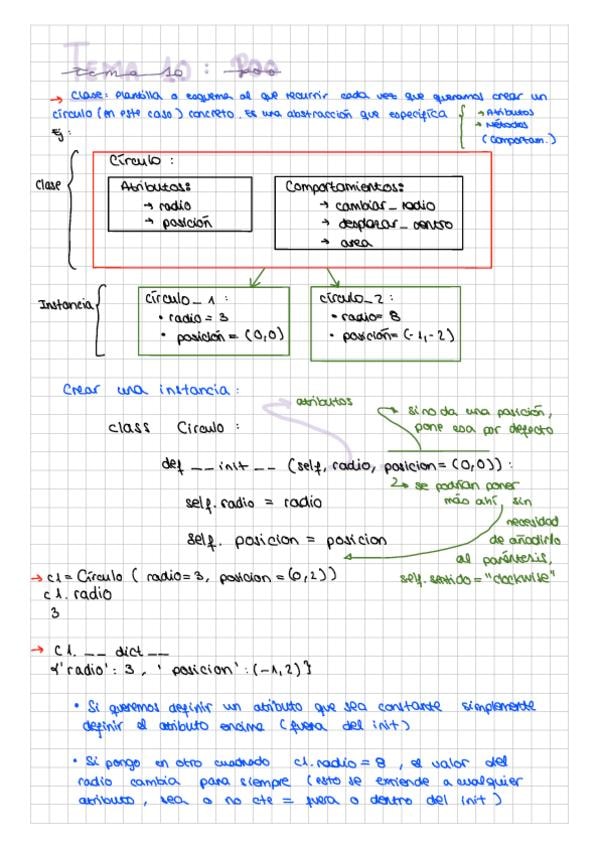 Tema 10: POO
→ Clase: Plantilla o esquema al que recurrir cada vez que queramos crear un
círculo (en este caso) concreto. Es una abstracción que especifica
→ Atributos
→ Métodos
(Comportam.)
Ej:
Clase
Círculo :
Atributos:
→ radio
→ posición
Comportamientos:
→ cambiar_radio
→ desplazar_centro
→ area
Instancia
círculo_1 :
• radio = 3
• posición = (0,0)
círculo_2 :
• radio = 8
• posición = (-1,-2)
Crear una instancia :
atributos
si no da una posición,
pone esa por defecto
class Circulo :
def __init__ (self, radio, posicion = (0,0)) :
se podrían poner
más ahí, sin
necesidad
de añadirlo
al paréntesis,
self.sentido = "clockwise"
self.radio = radio
self.posicion = posicion
→ c1 = Círculo ( radio = 3, posicion = (0,2))
c1.radio
3
→ c1.__dict__
{'radio' : 3, 'posicion' : (-1,2)}
• Si queremos definir un atributo que sea constante simplemente
definir el atributo encima (fuera del init)
• Si pongo en otro cuadrado c1.radio = 8, el valor del
radio cambia para siempre (esto se extiende a cualquier
atributo, sea o no cte = fuera o dentro del init)